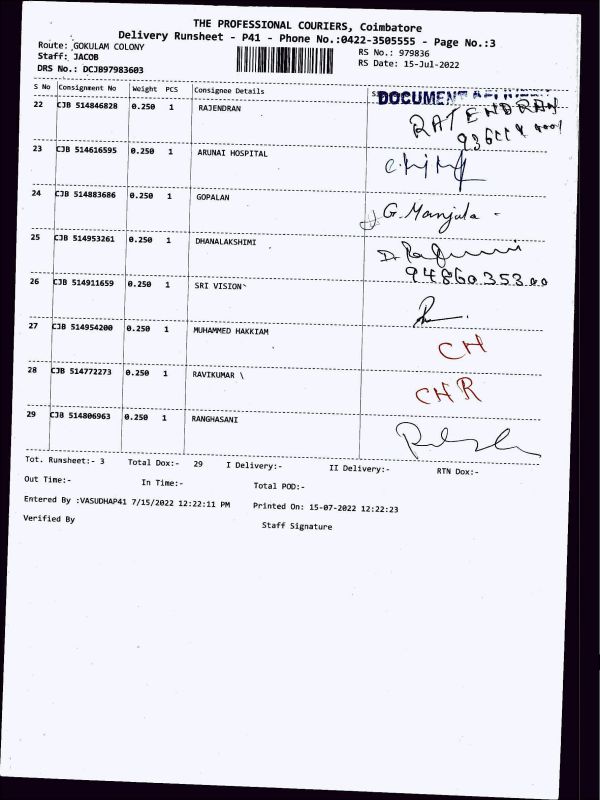 THE PROFESSIONAL COURIERS, Coimbatore
Delivery Runsheet - P41 - Phone No.:0422-3505555 - Page No.:3
Route: GOKULAM COLONY
RS No.: 979836
Staff: JACOB
RS Date: 15-Jul-2022
DRS No.: DCJB97983603
S No Consignment No Weight PCS Consignee Details
DOCUMENT
22 CJB 514846828 0.250 1 RAJENDRAN
23 CJB 514616595 0.250 1 ARUNAI HOSPITAL
24 CJB 514883686 0.250 1 GOPALAN G. Manjula -
25 CJB 514953261 0.250 1 DHANALAKSHIMI
9486035300
26 CJB 514911659 0.250 1 SRI VISION`
27 CJB 514954200 0.250 1 MUHAMMED HAKKIAM CH
28 CJB 514772273 0.250 1 RAVIKUMAR \ CHR
29 CJB 514806963 0.250 1 RANGHASANI
Tot. Runsheet:- 3 Total Dox:- 29 I Delivery:- II Delivery:- RTN Dox:-
Out Time:- In Time:- Total POD:-
Entered By :VASUDHAP41 7/15/2022 12:22:11 PM Printed On: 15-07-2022 12:22:23
Verified By Staff Signature